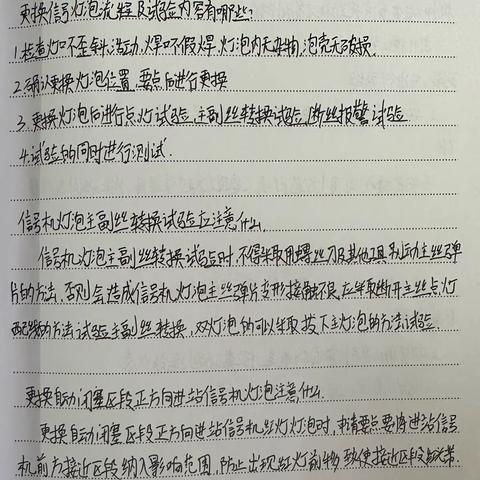 更换信号灯泡流程及试验内容有哪些?
1.检查灯口不歪斜、活动,焊口不假焊,灯泡内无异物,泡壳无破损.
2.确认更换灯泡位置,要点后进行更换
3.更换灯泡后进行点灯试验,主副丝转换试验,断丝报警试验
4.试验的同时进行测试.
信号机灯泡主副丝转换试验应注意什么.
信号机灯泡主副丝转换试验时,不得采取用螺丝刀及其他工具拨动主丝弹
片的方法,否则会造成信号机灯泡主丝弹片变形接触不良,应采取断开主丝点灯
配线的方法试验主副丝转换,双灯泡的可以采取拔下主灯泡的方法试验.
更换自动闭塞区段正方向进站信号机灯泡注意什么.
更换自动闭塞区段正方向进站信号机红灯灯泡时,申请要点要将进站信号
机前方接近区段纳入影响范围,防止出现红灯前移致使接近区段